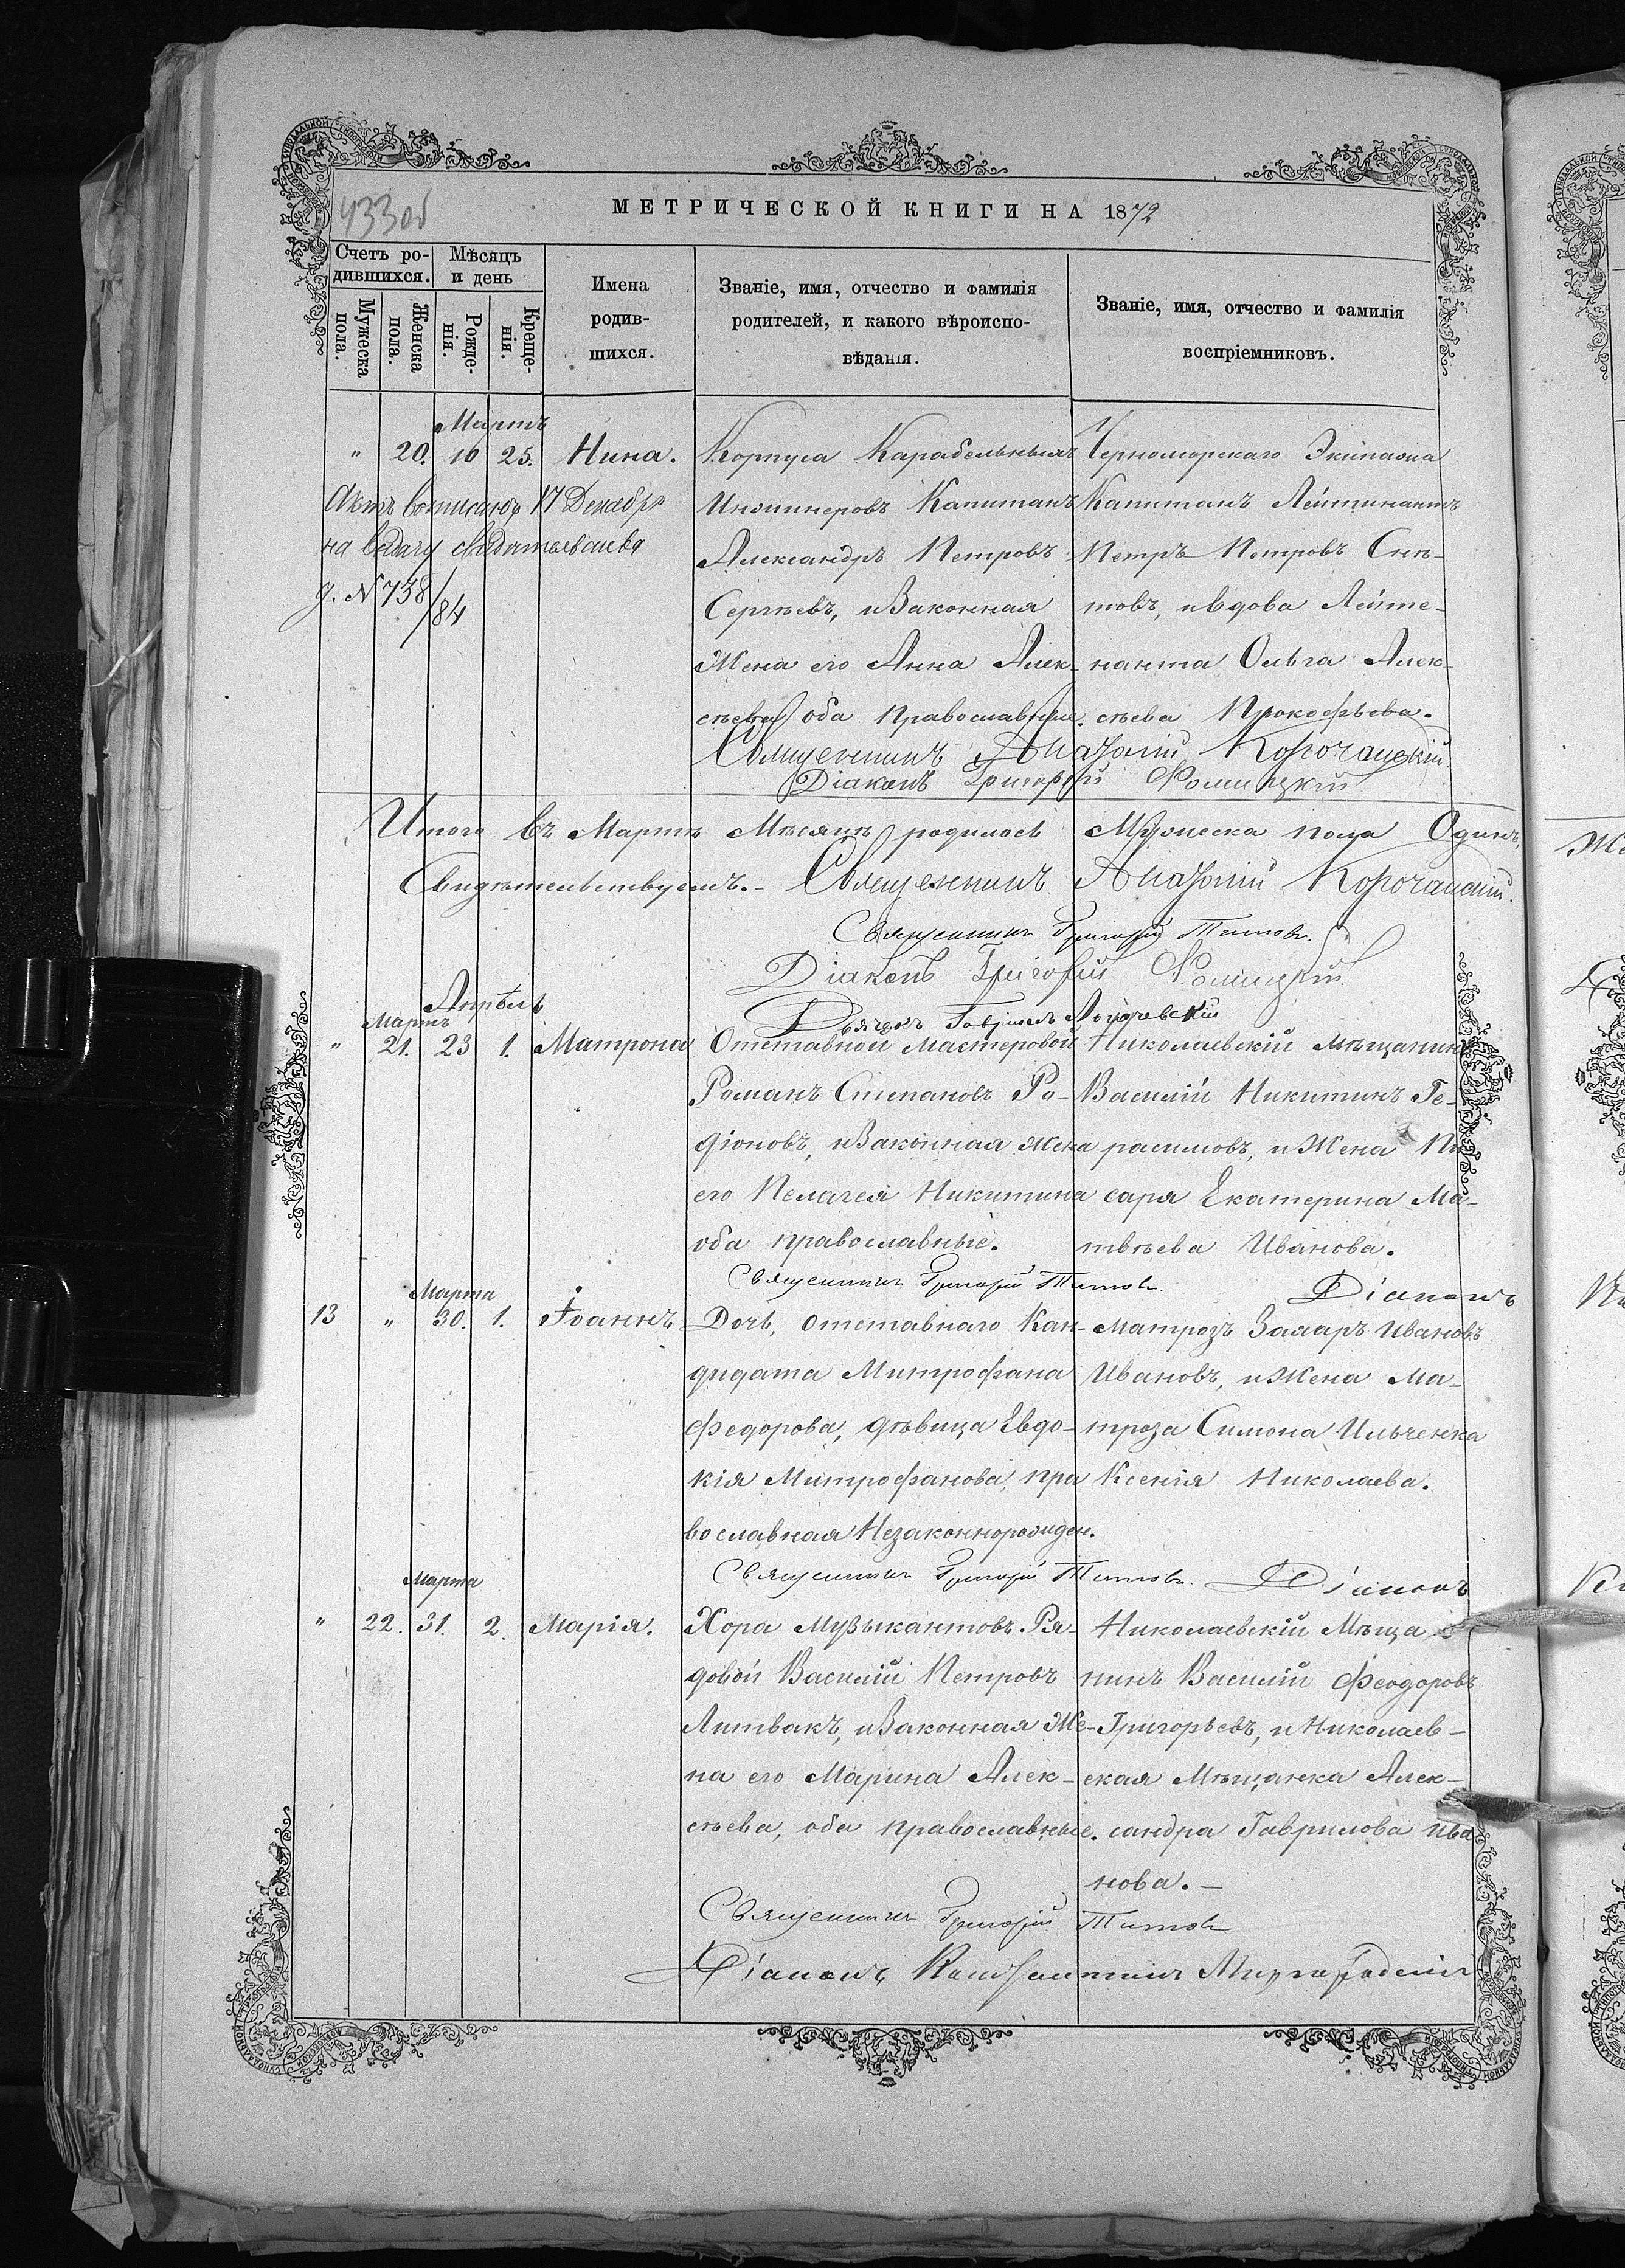 433об
МЕТРИЧЕСКОЙ КНИГИ НА 1872
Счетъ ро-
дившихся.
Мѣсяцъ
и день
Мужеска
пола.
Женска
пола.
Рожде-
нія.
Креще-
нія.
Имена
родив-
шихся.
Званіе, имя, отчество и фамилія
родителей, и какого вѣроиспо-
вѣданія.
Званіе, имя, отчество и фамилія
воспріемниковъ.
Мартъ
" 20. 16 25. Нина.
Актъ выписанъ 17 Декабря
на выдачу свидѣтельства
д. N 738/84
Корпуса Карабельныхъ
Инжинеровъ Капитанъ
Александръ Петровъ
Сергѣевъ, и Законная
Жена его Анна Алек-
сѣева оба Православные.
Черноморскаго Экіпажа
Капитанъ Лейтинантъ
Петръ Петровъ Снѣ-
товъ, и вдова Лейте-
нанта Ольга Алек-
сѣева Прокофьева.
Священникъ Анатолій Корочанскій
Діаконъ Григорій
Итого въ Мартѣ Мѣсяцѣ родилось Мужеска пола Одинъ,
Свидѣтельствуемъ. - Священникъ Анатолій Корочанскій.
Священникъ Григорій Титовъ.
Діаконъ Григорій
Дьячекъ Гавріилъ
Апрѣль
Мартъ
" 21. 23 1. Матрона
Отставной мастеровой
Романъ Степановъ Ро-
діоновъ, и Законная жена
его Пелагея Никитина
оба православные.
Николаевскій мѣщанинъ
Василій Никитинъ Ге-
расимовъ, и Жена Пи
саря Екатерина Ма-
твѣева Иванова.
Священникъ Григорій Титовъ. Діаконъ
Марта
13 " 30. 1. Іоаннъ
Дочь, отставнаго Кан-
дидата Митрофана
Федорова, дѣвица Евдо-
кія Митрофанова, пра
вославная Незаконнорожден.
Матрозъ Захаръ Ивановъ
Ивановъ, и Жена Ма-
троза Симона Ильченка
Ксенія Николаева.
Священникъ Григорій Титовъ. Діаконъ
Марта
" 22. 31. 2. Марія.
Хора Музыкантовъ Ря-
довой Василій Петровъ
Литвакъ, и Законная Же-
на его Марина Алек-
сѣева, оба православные.
Николаевскій Мѣща
нинъ Василій Феодоровъ
Григорьевъ, и Николаев-
ская Мѣщанка Алек-
сандра Гаврилова Ива
нова. -
Священникъ Григорій Титовъ
Діаконъ Константинъ